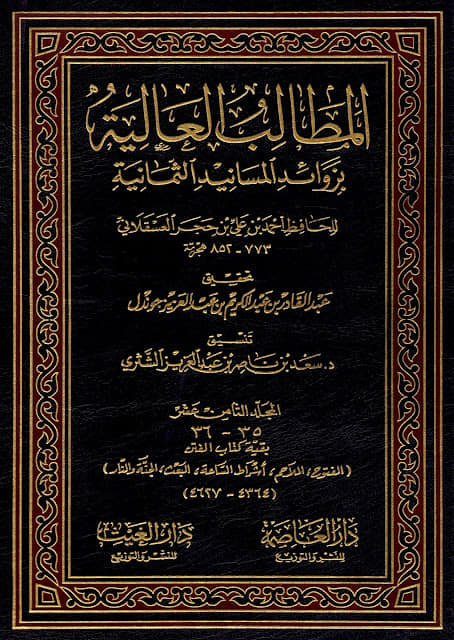 المطالب العالية
بزوائد المسانيد الثمانية
للحافظ أحمد بن علي بن حجر العسقلاني
٧٧٣ - ٨٥٢ هجرية
تحقيق
عبد القادر بن عبد الكريم بن عبد العزيز جوندل
تنسيق
د. سعد بن ناصر بن عبد العزيز الشثري
المجلد الثامن عشر
٣٥ - ٣٦
بقية كتاب الفتن
(الفتوح، الملاحم، أشراط الساعة، البعث، الجنة والنار)
(٤٣٦٤ - ٤٦٢٧)
دار العاصمة
للنشر والتوزيع
دار الغيث
للنشر والتوزيع